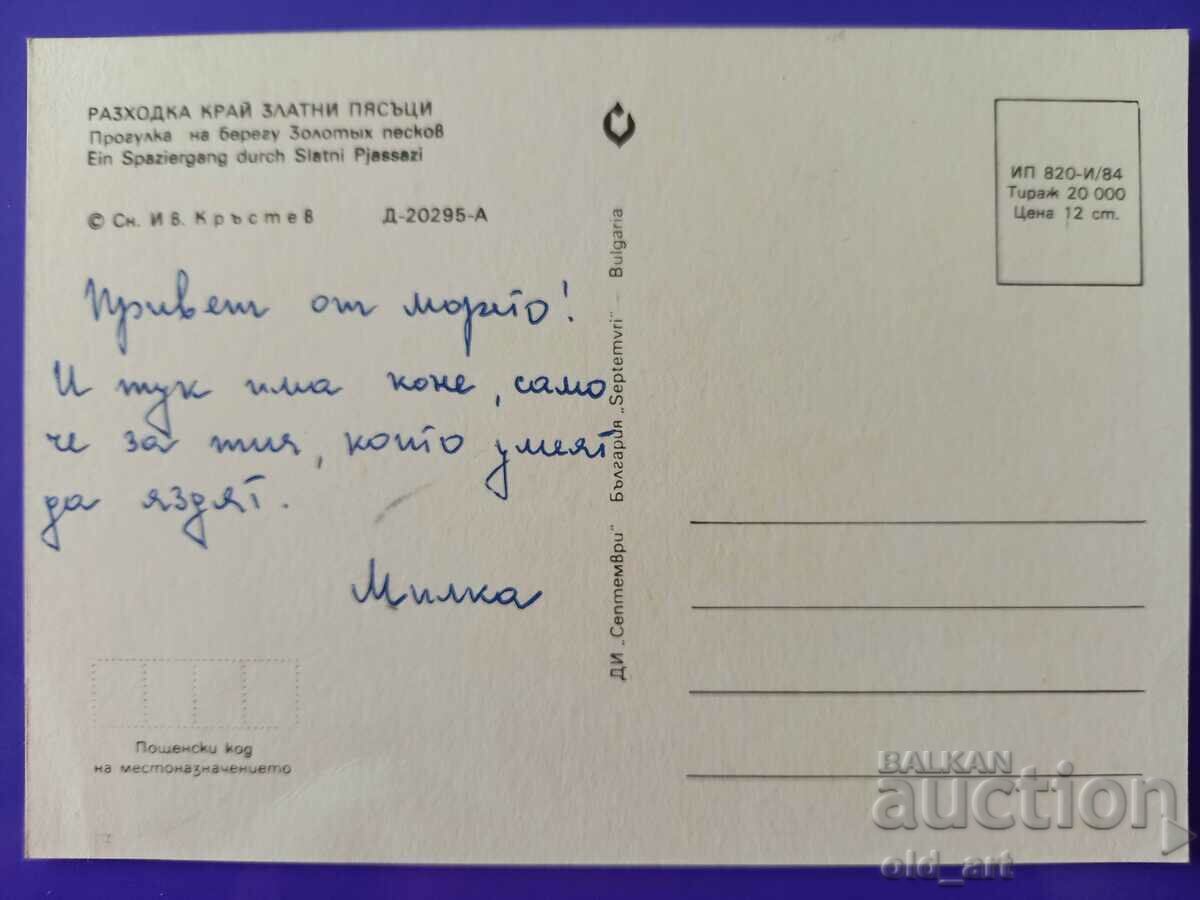 РАЗХОДКА КРАЙ ЗЛАТНИ ПЯСЪЦИ
Прогулка на берегу Золотых песков
Ein Spaziergang durch Slatni Pjassazi
© Сн. Ив. Кръстев Д-20295-А
Привет от морето!
И тук има коне, само
че за тия, които умеят
да яздят.
Милка
Пощенски код
на местоназначението
ДИ „Септември“ България „Septemvri“ — Bulgaria
ИП 820-И/84
Тираж 20 000
Цена 12 ст.
BALKAN
auction
old_art